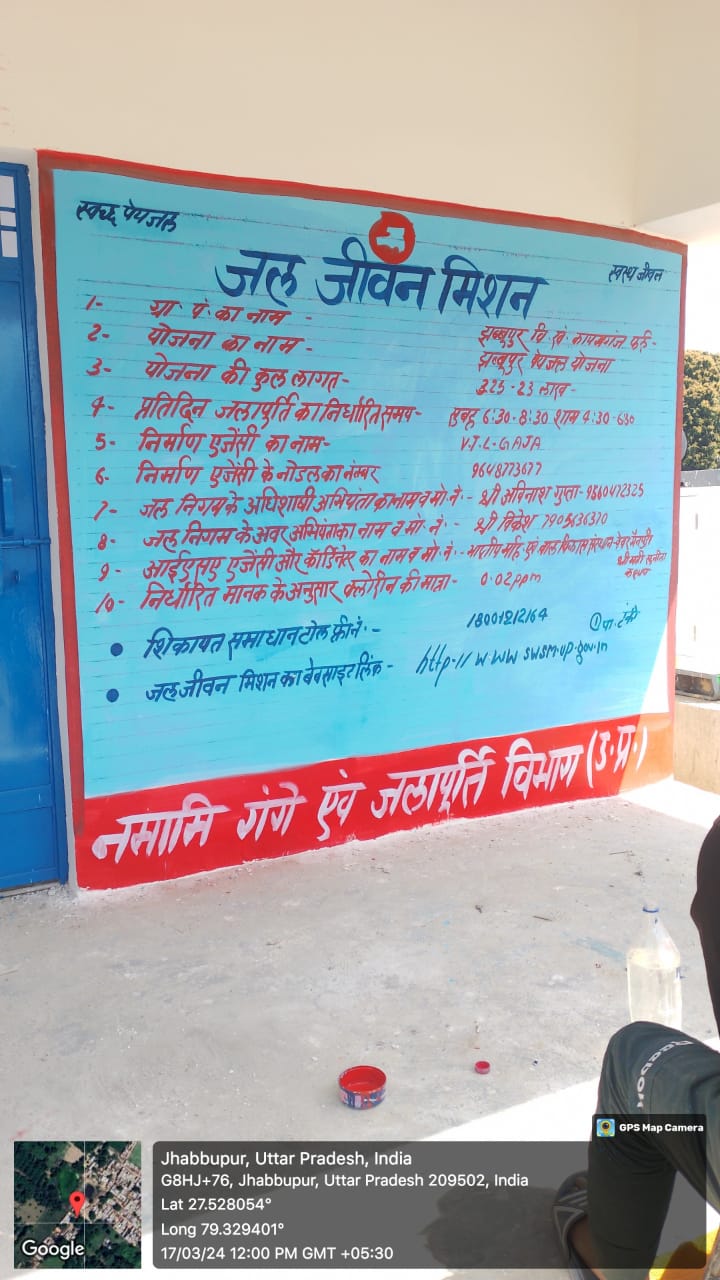 स्वच्छ पेयजल
स्वस्थ जीवन
जल जीवन मिशन
1- ग्रा पं. का नाम - झब्बूपुर वि. खं. कायमगंज फर्रु-
2- योजना का नाम - झब्बूपुर पेयजल योजना
3- योजना की कुल लागत- 325-23 लाख-
4- प्रतिदिन जलापूर्ति का निर्धारित समय- सुबह 6:30-8:30 शाम 4:30-6:30
5- निर्माण एजेंसी का नाम- V.T.L-GAJA
6- निर्माण एजेंसी के नोडल का नम्बर 9648773677
7- जल निगम के अधिशाषी अभियंता का नाम व मो. नं.- श्री अविनाश गुप्ता- 9560472325
8- जल निगम के अवर अभियंता का नाम व मो. नं.- श्री विकेश 7905636370
9- आईएसए एजेंसी और कॉर्डिनेटर का नाम व मो. नं.- एवं बाल विकास संस्थान
श्री मती सुनीता
कश्यप
10- निर्धारित मानक के अनुसार क्लोरीन की मात्रा- 0.02ppm
• शिकायत समाधान टोल फ्री नं.- 18001212164
• जल जीवन मिशन का वेबसाइट लिंक- http-// www swsm.up.gov.in
नमामि गंगे एंव जलापूर्ति विभाग (उ.प्र.)
Reebok
GPS Map Camera
Jhabbupur, Uttar Pradesh, India
G8HJ+76, Jhabbupur, Uttar Pradesh 209502, India
Lat 27.528054°
Long 79.329401°
17/03/24 12:00 PM GMT +05:30
Google